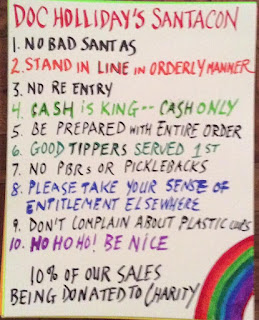 DOC HOLLIDAY'S SANTACON
1. NO BAD SANTAS
2. STAND IN LINE IN ORDERLY MANNER
3. NO RE ENTRY
4. CASH IS KING-- CASH ONLY
5. BE PREPARED WITH ENTIRE ORDER
6. GOOD TIPPERS SERVED 1ST
7. NO PBRs OR PICKLEBACKS
8. PLEASE TAKE YOUR SENSE OF
ENTITLEMENT ELSEWHERE
9. DON'T COMPLAIN ABOUT PLASTIC CUPS
10. HO HO HO! BE NICE
10% OF OUR SALES
BEING DONATED TO CHARITY